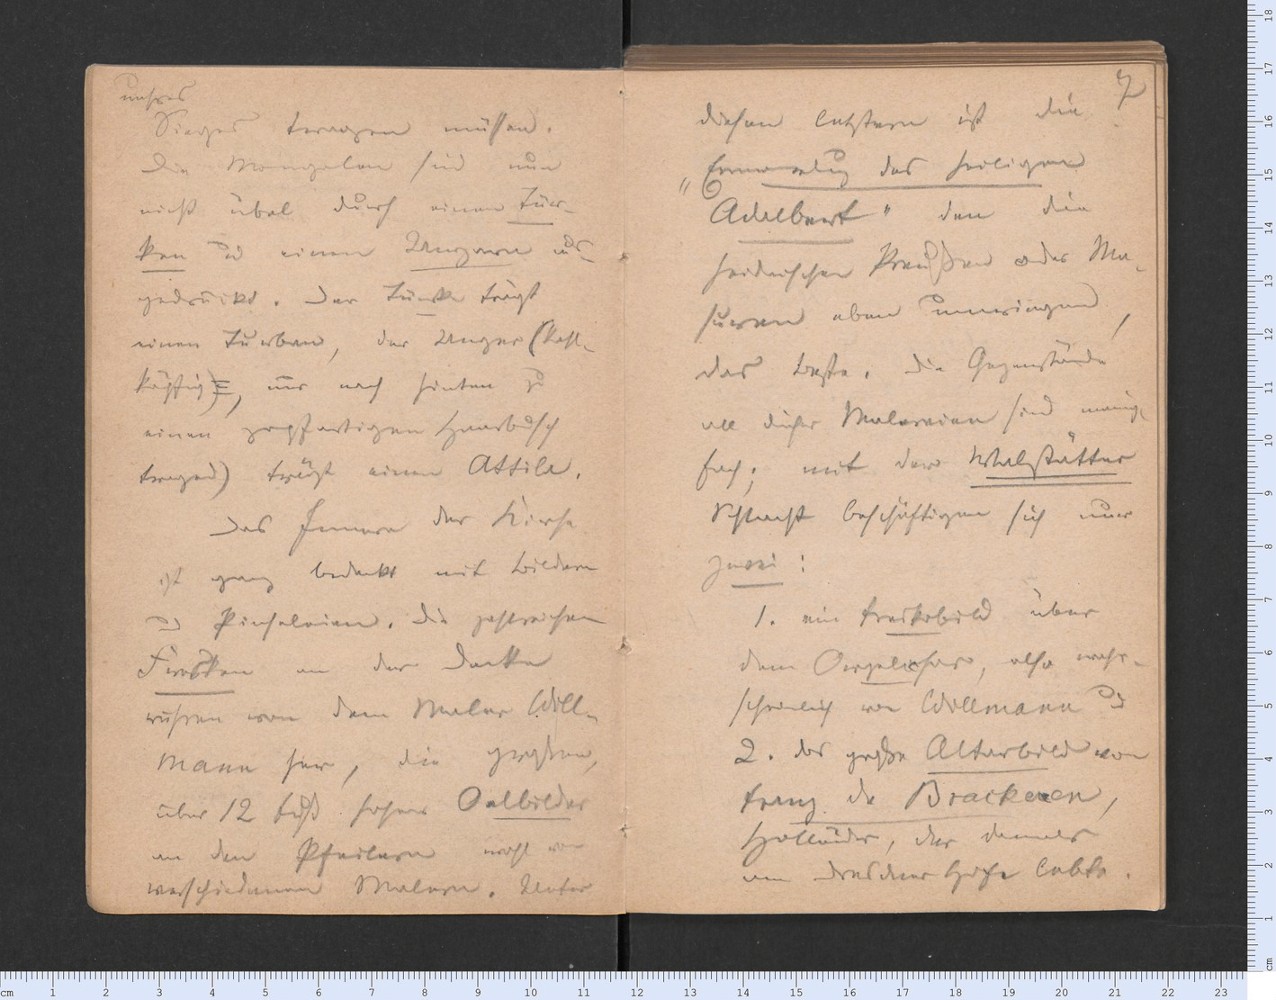 unsres
Sieges tragen müssen.
Die Mongolen sind nun
nicht übel durch einen Tür-
ken u einen Ungarn aus-
gedrückt. Der Türke trägt
einen Turban, der Unger (kahl-
köpfig, nur nach hinten zu
einen zopfartigen Haarbusch
tragend) trägt einen Attila.
Das Innere der Kirche
ist ganz bedeckt mit Bildern
u Pinseleien. Die zahlreichen
Fresken an der Decke
rühren von dem Maler Will-
mann her, die großen,
über 12 Fuß hohen Oelbilder
an den Pfeilern wohl von
verschiedenen Malern. Unter
7
diesen letztern ist die
„Ermordung des heiligen
Adalbert" den die
heidnischen Preußen oder Ma-
suren eben umringen,
das beste. Die Gegenstände
all dieser Malereien sind manig-
fach; mit der Wahlstätter
Schlacht beschäftigen sich nur
zwei:
1. ein Freskobild über
dem Orgelchor, also wahr-
scheinlich von Willmann u
2. das große Altarbild von
Franz de Backer,
Holländer, der damals
am Dresdner Hofe lebte.